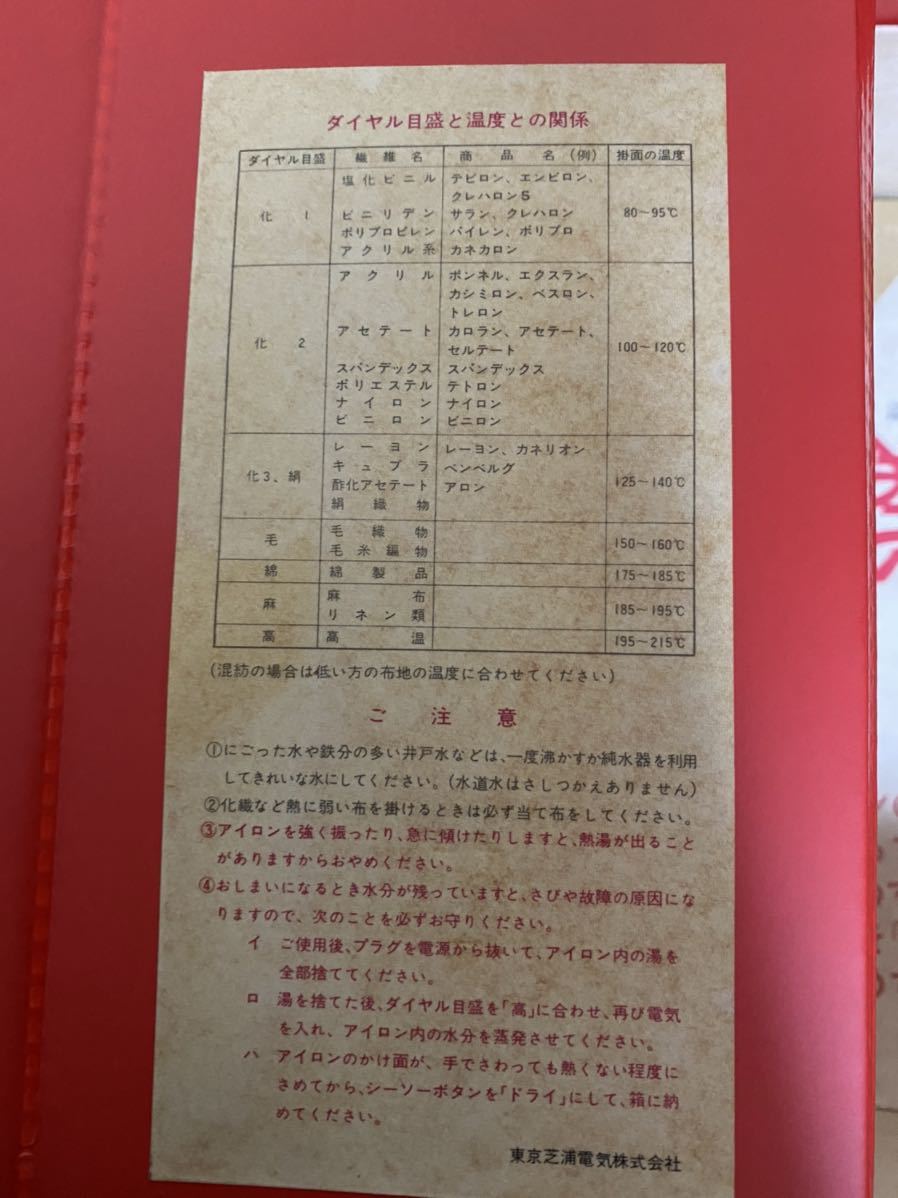 ダイヤル目盛と温度との関係
ダイヤル目盛 繊維名 商品名(例) 掛面の温度
化1 塩化ビニル テビロン、エンビロン、 80〜95℃
クレハロンS
ビニリデン サラン、クレハロン
ポリプロピレン パイレン、ポリプロ
アクリル系 カネカロン
化2 アクリル ボンネル、エクスラン、 100〜120℃
カシミロン、ベスロン、
トレロン
アセテート カロラン、アセテート、
セルテート
スパンデックス スパンデックス
ポリエステル テトロン
ナイロン ナイロン
ビニロン ビニロン
化3、絹 レーヨン レーヨン、カネリオン 125〜140℃
キュプラ ベンベルグ
酢化アセテート アロン
絹織物
毛 毛織物 150〜160℃
毛糸編物
綿 綿製品 175〜185℃
麻 麻布 185〜195℃
リネン類
高 高温 195〜215℃
(混紡の場合は低い方の布地の温度に合わせてください)
ご注意
①にごった水や鉄分の多い井戸水などは、一度沸かすか純水器を利用
してきれいな水にしてください。(水道水はさしつかえありません)
②化繊など熱に弱い布を掛けるときは必ず当て布をしてください。
③アイロンを強く振ったり、急に傾けたりしますと、熱湯が出ること
がありますからおやめください。
④おしまいになるとき水分が残っていますと、さびや故障の原因にな
りますので、次のことを必ずお守りください。
イ ご使用後、プラグを電源から抜いて、アイロン内の湯を
全部捨ててください。
ロ 湯を捨てた後、ダイヤル目盛を「高」に合わせ、再び電気
を入れ、アイロン内の水分を蒸発させてください。
ハ アイロンのかけ面が、手でさわっても熱くない程度に
さめてから、シーソーボタンを「ドライ」にして、箱に納
めてください。
東京芝浦電気株式会社